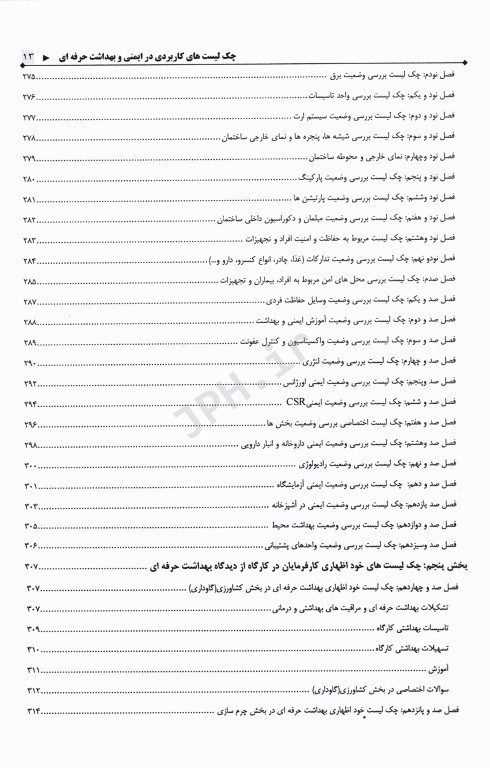 چک لیست های کاربردی در ایمنی و بهداشت حرفه ای ◄ ۱۳
فصل نودم: چک لیست بررسی وضعیت برق ........ ۲۷۵
فصل نود و یکم: چک لیست بررسی واحد تاسیسات ........ ۲۷۶
فصل نود و دوم: چک لیست بررسی وضعیت سیستم ارت ........ ۲۷۷
فصل نود و سوم: چک لیست بررسی شیشه ها، پنجره ها و نمای خارجی ساختمان ........ ۲۷۸
فصل نود وچهارم: نمای خارجی و محوطه ساختمان ........ ۲۷۹
فصل نود و پنجم: چک لیست بررسی وضعیت پارکینگ ........ ۲۸۰
فصل نود وششم: چک لیست بررسی وضعیت پارتیشن ها ........ ۲۸۱
فصل نود و هفتم: چک لیست بررسی وضعیت مبلمان و دکوراسیون داخلی ساختمان ........ ۲۸۲
فصل نود وهشتم: چک لیست مربوط به حفاظت و امنیت افراد و تجهیزات ........ ۲۸۳
فصل نودو نهم: چک لیست بررسی وضعیت تدارکات (غذا، چادر، انواع کنسرو، دارو و...) ........ ۲۸۴
فصل صدم: چک لیست بررسی محل های امن مربوط به افراد، بیماران و تجهیزات ........ ۲۸۵
فصل صد و یکم: چک لیست بررسی وضعیت وسایل حفاظت فردی ........ ۲۸۷
فصل صد و دوم: چک لیست بررسی وضعیت آموزش ایمنی و بهداشت ........ ۲۸۸
فصل صد و سوم: چک لیست بررسی وضعیت واکسیناسیون و کنترل عفونت ........ ۲۸۹
فصل صد و چهارم: چک لیست بررسی وضعیت لنژری ........ ۲۹۰
فصل صد وپنجم: چک لیست بررسی وضعیت ایمنی اورژانس ........ ۲۹۲
فصل صد و ششم: چک لیست بررسی وضعیت ایمنی CSR ........ ۲۹۴
فصل صد و هفتم: چک لیست اختصاصی بررسی وضعیت بخش ها ........ ۲۹۶
فصل صد وهشتم: چک لیست بررسی وضعیت ایمنی داروخانه و انبار دارویی ........ ۲۹۸
فصل صد و نهم: چک لیست بررسی وضعیت رادیولوژی ........ ۳۰۰
فصل صد و دهم: چک لیست بررسی وضعیت ایمنی آزمایشگاه ........ ۳۰۱
فصل صد یازدهم: چک لیست بررسی وضعیت ایمنی در آشپزخانه ........ ۳۰۳
فصل صد و دوازدهم: چک لیست بررسی وضعیت بهداشت محیط ........ ۳۰۵
فصل صد وسیزدهم: چک لیست بررسی وضعیت واحدهای پشتیبانی ........ ۳۰۶
بخش پنجم: چک لیست های خود اظهاری کارفرمایان در کارگاه از دیدگاه بهداشت حرفه ای ........ ۳۰۷
فصل صد و چهاردهم: چک لیست خود اظهاری بهداشت حرفه ای در بخش کشاورزی(گاوداری) ........ ۳۰۷
تشکیلات بهداشت حرفه ای و مراقبت های بهداشتی و درمانی ........ ۳۰۷
تاسیسات بهداشتی کارگاه ........ ۳۰۹
تسهیلات بهداشتی کارگاه ........ ۳۱۰
آموزش ........ ۳۱۱
سوالات اختصاصی در بخش کشاورزی(گاوداری) ........ ۳۱۲
فصل صد و پانزدهم: چک لیست خود اظهاری بهداشت حرفه ای در بخش چرم سازی ........ ۳۱۴
JPH.ir